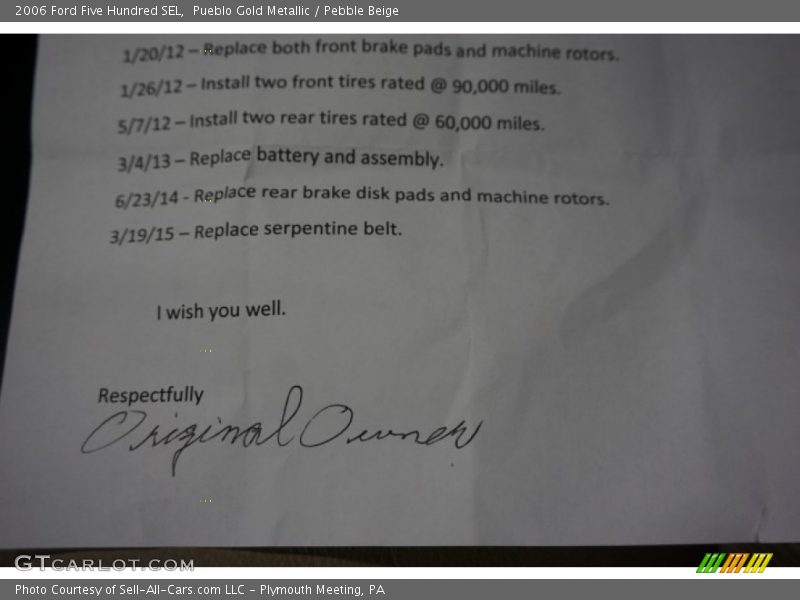 2006 Ford Five Hundred SEL, Pueblo Gold Metallic / Pebble Beige
1/20/12 – Replace both front brake pads and machine rotors.
1/26/12 – Install two front tires rated @ 90,000 miles.
5/7/12 – Install two rear tires rated @ 60,000 miles.
3/4/13 – Replace battery and assembly.
6/23/14 - Replace rear brake disk pads and machine rotors.
3/19/15 – Replace serpentine belt.
I wish you well.
Respectfully
Original Owner
GTCARLOT.COM
Photo Courtesy of Sell-All-Cars.com LLC - Plymouth Meeting, PA